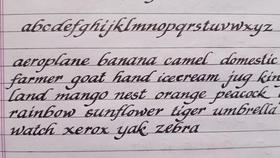 abcdefghijklmnopqrstuvwxyz
aeroplane banana camel domestic
farmer goat hand icecream jug
land mango nest orange peacock
rainbow sunflower tiger umbrella
watch xerox yak zebra